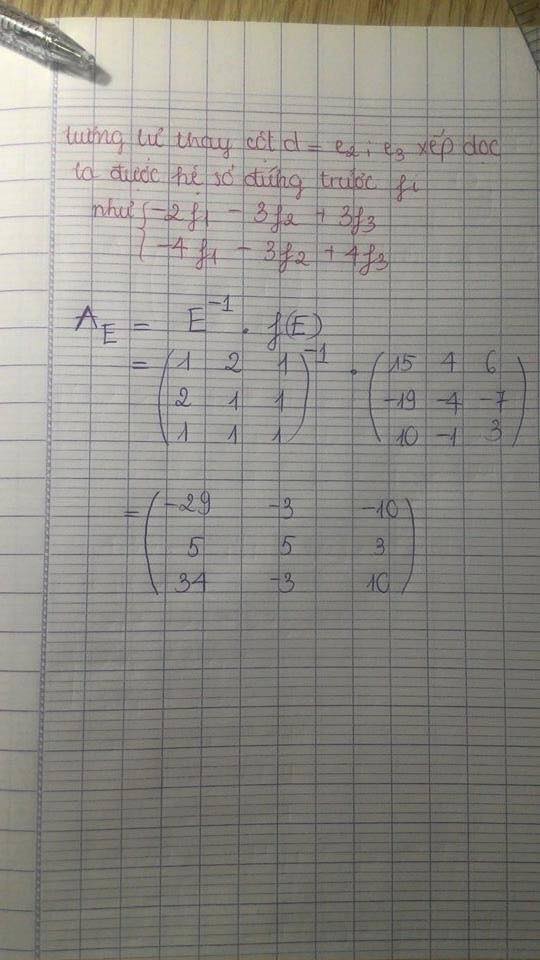 tương tự thay cột d = e2 ; e3 xếp dọc
ta được hệ số đứng trước fi
như { -2f1 - 3f2 + 3f3
{ -4f1 - 3f2 + 4f3
A_E = E^-1 . f(E)
= ( 1 2 1 )^-1 . ( 15 4 6 )
( 2 1 1 ) ( -19 -4 -7 )
( 1 1 1 ) ( 10 -1 3 )
= ( -29 -3 -10 )
( 5 5 3 )
( 34 -3 10 )